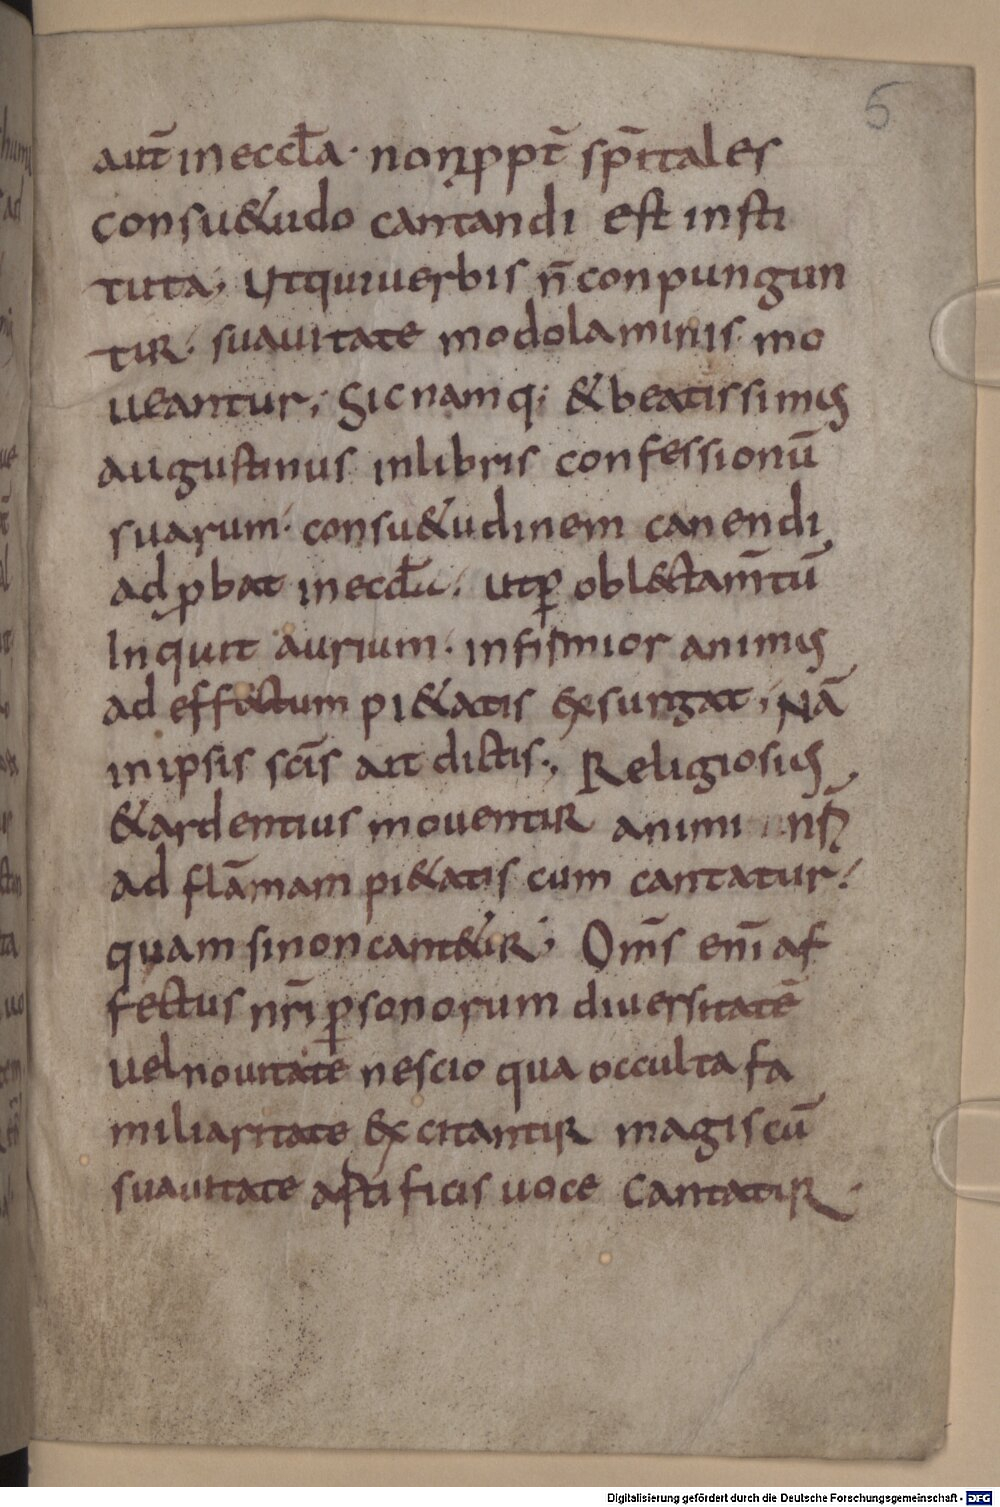 5
aut̄ in eccl̄a· non ꝓpt̄ sp̄itales
consu&udo cantandi est insti
tuta; Ut qui uerbis n̄ conpungun
tur· suauitate modolaminis mo
ueantur; Sic namq; & beatissimus
augustinus in libris confessionū
suarum· consu&udinem canendi
adꝓbat in eccl̄a; ut ꝑ obl&ctam̄tū
Inquit aurium· infirmior animus
ad effectum pi&atis exsurgat; Nā
in ipsis sc̄is ait dictis; Religiosius
& ardentius mouentur animi nr̄i
ad flāmam pi&atis cum cantatur;
quam si non cant&ur; Om̄s eni̅ af
fectus nr̄i ꝑ sonorum diuersitatē
uel nouitate nescio qua occulta fa
miliaritate excitantur magis cū
suauitate artificis uoce cantatur·
Digitalisierung gefördert durch die Deutsche Forschungsgemeinschaft - DFG